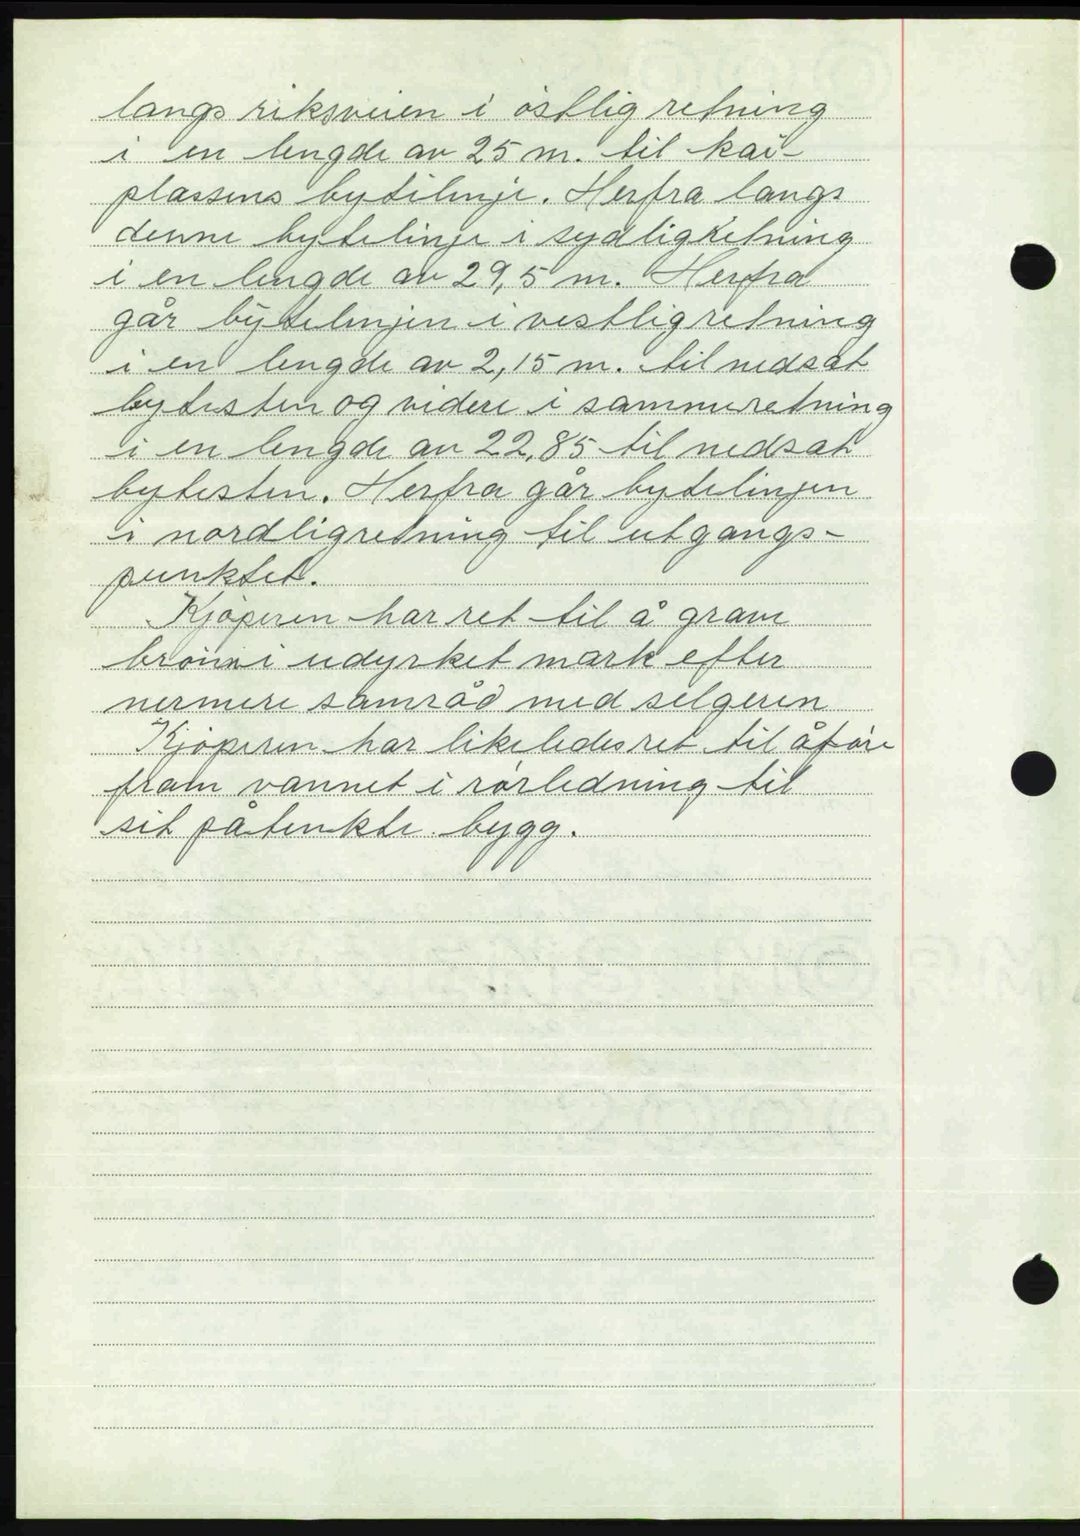 langs riksveien i östlig retning
i en lengde av 25 m. til kai-
plassens bytelinje. Herfra langs
denne bytelinje i sydlig retning
i en lengde av 29,5 m. Herfra
går bytelinjen i vestlig retning
i en lengde av 2,15 m. til nedsat
bytesten og videre i samme retning
i en lengde av 22,85 til nedsat
bytesten. Herfra går bytelinjen
i nordlig retning til utgangs-
punktet.
Kjöperen har ret til å grave
brönn i udyrket mark efter
nermere samråd med selgeren
Kjöperen har likeledes ret til å före
fram vannet i rörledning til
sit påtenkte bygg.